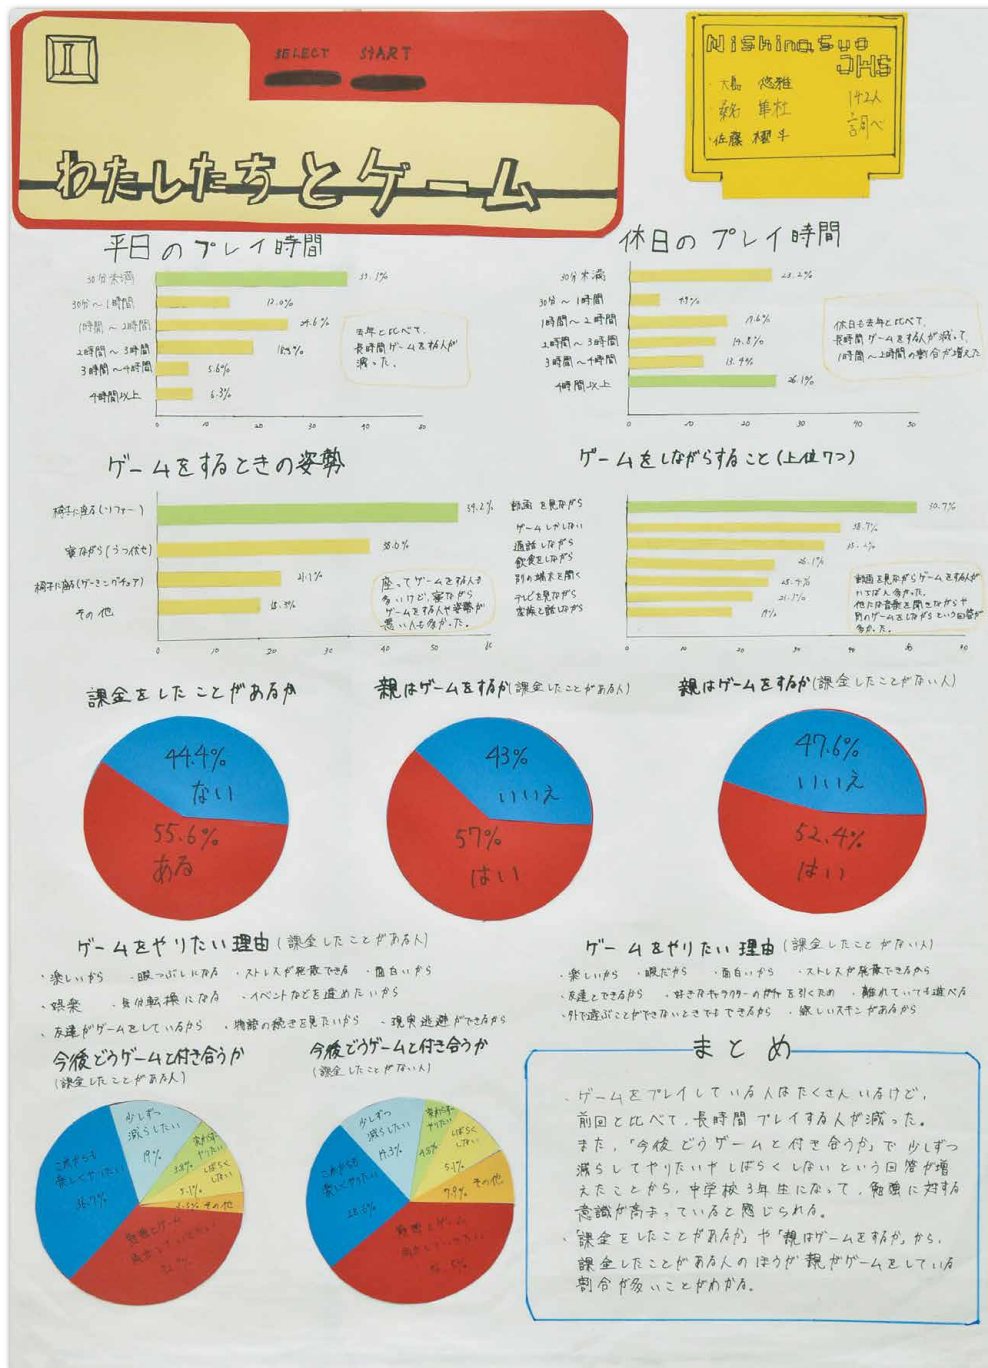 I
SELECT START
わたしたちとゲーム
Nishinasuno
JHS
・大島 悠雅
142人
調べ
・佐藤 櫂斗
平日のプレイ時間
30分未満
30分～1時間
1時間～2時間 24.6%
2時間～3時間
3時間～4時間 5.6%
4時間以上 6.3%
0 10 20 30 40 50
去年と比べて、
長時間ゲームをする人が
減った。
休日のプレイ時間
30分未満 23.2%
30分～1時間
1時間～2時間 17.6%
2時間～3時間 14.8%
3時間～4時間 13.4%
4時間以上 26.1%
0 10 20 30 40 50
休日も去年と比べて、
長時間ゲームをする人が減って、
1時間～2時間の割合が増えた
ゲームをするときの姿勢
椅子に座る(ソファー)
寝ながら(うつ伏せ)
椅子に座る(ゲーミングチェア) 21.1%
その他 18.3%
0 10 20 30 40 50 60
座ってゲームをする人も
多いけど、寝ながら
ゲームをする人や姿勢が
悪い人も多かった。
ゲームをしながらすること(上位7つ)
動画を見ながら 50.7%
ゲームしかしない 38.7%
通話しながら 35.2%
飲食をしながら 26.1%
別の端末を開く
テレビを見ながら
家族と話しながら 19%
動画を見ながらゲームをする人が
いちばん多かった。
他には音楽を聞きながらや
別のゲームをしながらという回答が
多かった。
課金をしたことがあるか
44.4%
ない
55.6%
ある
親はゲームをするか(課金したことがある人)
43%
いいえ
57%
はい
親はゲームをするか(課金したことがない人)
47.6%
いいえ
52.4%
はい
ゲームをやりたい理由(課金したことがある人)
・楽しいから ・暇つぶしになる ・ストレスが発散できる ・面白いから
・娯楽 ・気分転換になる ・イベントなどを進めたいから
・友達がゲームをしているから ・物語の続きを見たいから ・現実逃避ができるから
ゲームをやりたい理由(課金したことがない人)
・楽しいから ・暇だから ・面白いから ・ストレスが発散できるから
・友達とできるから ・好きなキャラクターのガチャを引くため ・離れていても遊べる
・外で遊ぶことができないときでもできるから ・欲しいスキンがあるから
今後どうゲームと付き合うか
(課金したことがある人)
少しずつ
減らしたい
19%
変わらず
やりたい
3.8%
しばらく
しない
5.1%
その他
これからも
楽しくやりたい
勉強とゲーム
両立していきたい
今後どうゲームと付き合うか
(課金したことがない人)
少しずつ
減らしたい
14.3%
変わらず
やりたい
4.8%
しばらく
しない
その他
7.9%
これからも
楽しくやりたい
28.6%
勉強とゲーム
両立していきたい
まとめ
・ゲームをプレイしている人はたくさんいるけど、
前回と比べて、長時間プレイする人が減った。
また、「今後どうゲームと付き合うか」で少しずつ
減らしてやりたいやしばらくしないという回答が増
えたことから、中学校3年生になって、勉強に対する
意識が高まっていると感じられる。
・「課金をしたことがあるか」や「親はゲームをするか」から、
課金したことがある人のほうが親がゲームをしている
割合が多いことがわかる。